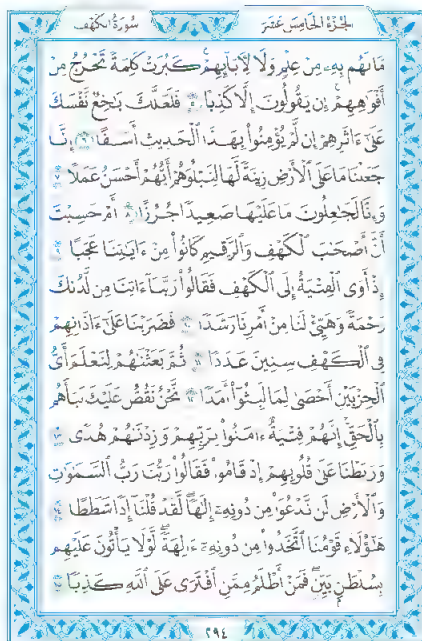 الجُزْءُ الخَامِسَ عَشَرَ سُورَةُ الكَهْفِ
مَّا لَهُم بِهِۦ مِنْ عِلْمٍ وَلَا لِأٓبَآئِهِمْ ۚ كَبُرَتْ كَلِمَةً تَخْرُجُ مِنْ
أَفْوَٰهِهِمْ ۚ إِن يَقُولُونَ إِلَّا كَذِبًا ٥ فَلَعَلَّكَ بَٰخِعٌ نَّفْسَكَ
عَلَىٰٓ ءَاثَٰرِهِمْ إِن لَّمْ يُؤْمِنُوا۟ بِهَٰذَا ٱلْحَدِيثِ أَسَفًا ٦ إِنَّا
جَعَلْنَا مَا عَلَى ٱلْأَرْضِ زِينَةً لَّهَا لِنَبْلُوَهُمْ أَيُّهُمْ أَحْسَنُ عَمَلًا ٧
وَإِنَّا لَجَٰعِلُونَ مَا عَلَيْهَا صَعِيدًا جُرُزًا ٨ أَمْ حَسِبْتَ
أَنَّ أَصْحَٰبَ ٱلْكَهْفِ وَٱلرَّقِيمِ كَانُوا۟ مِنْ ءَايَٰتِنَا عَجَبًا ٩
إِذْ أَوَى ٱلْفِتْيَةُ إِلَى ٱلْكَهْفِ فَقَالُوا۟ رَبَّنَآ ءَاتِنَا مِن لَّدُنكَ
رَحْمَةً وَهَيِّئْ لَنَا مِنْ أَمْرِنَا رَشَدًا ١٠ فَضَرَبْنَا عَلَىٰٓ ءَاذَانِهِمْ
فِى ٱلْكَهْفِ سِنِينَ عَدَدًا ١١ ثُمَّ بَعَثْنَٰهُمْ لِنَعْلَمَ أَىُّ
ٱلْحِزْبَيْنِ أَحْصَىٰ لِمَا لَبِثُوٓا۟ أَمَدًا ١٢ نَّحْنُ نَقُصُّ عَلَيْكَ نَبَأَهُم
بِٱلْحَقِّ ۚ إِنَّهُمْ فِتْيَةٌ ءَامَنُوا۟ بِرَبِّهِمْ وَزِدْنَٰهُمْ هُدًى ١٣
وَرَبَطْنَا عَلَىٰ قُلُوبِهِمْ إِذْ قَامُوا۟ فَقَالُوا۟ رَبُّنَا رَبُّ ٱلسَّمَٰوَٰتِ
وَٱلْأَرْضِ لَن نَّدْعُوَا۟ مِن دُونِهِۦٓ إِلَٰهًا ۖ لَّقَدْ قُلْنَآ إِذًا شَطَطًا ١٤
هَٰٓؤُلَآءِ قَوْمُنَا ٱتَّخَذُوا۟ مِن دُونِهِۦٓ ءَالِهَةً ۖ لَّوْلَا يَأْتُونَ عَلَيْهِم
بِسُلْطَٰنٍۭ بَيِّنٍ ۖ فَمَنْ أَظْلَمُ مِمَّنِ ٱفْتَرَىٰ عَلَى ٱللَّهِ كَذِبًا ١٥
٢٩٤